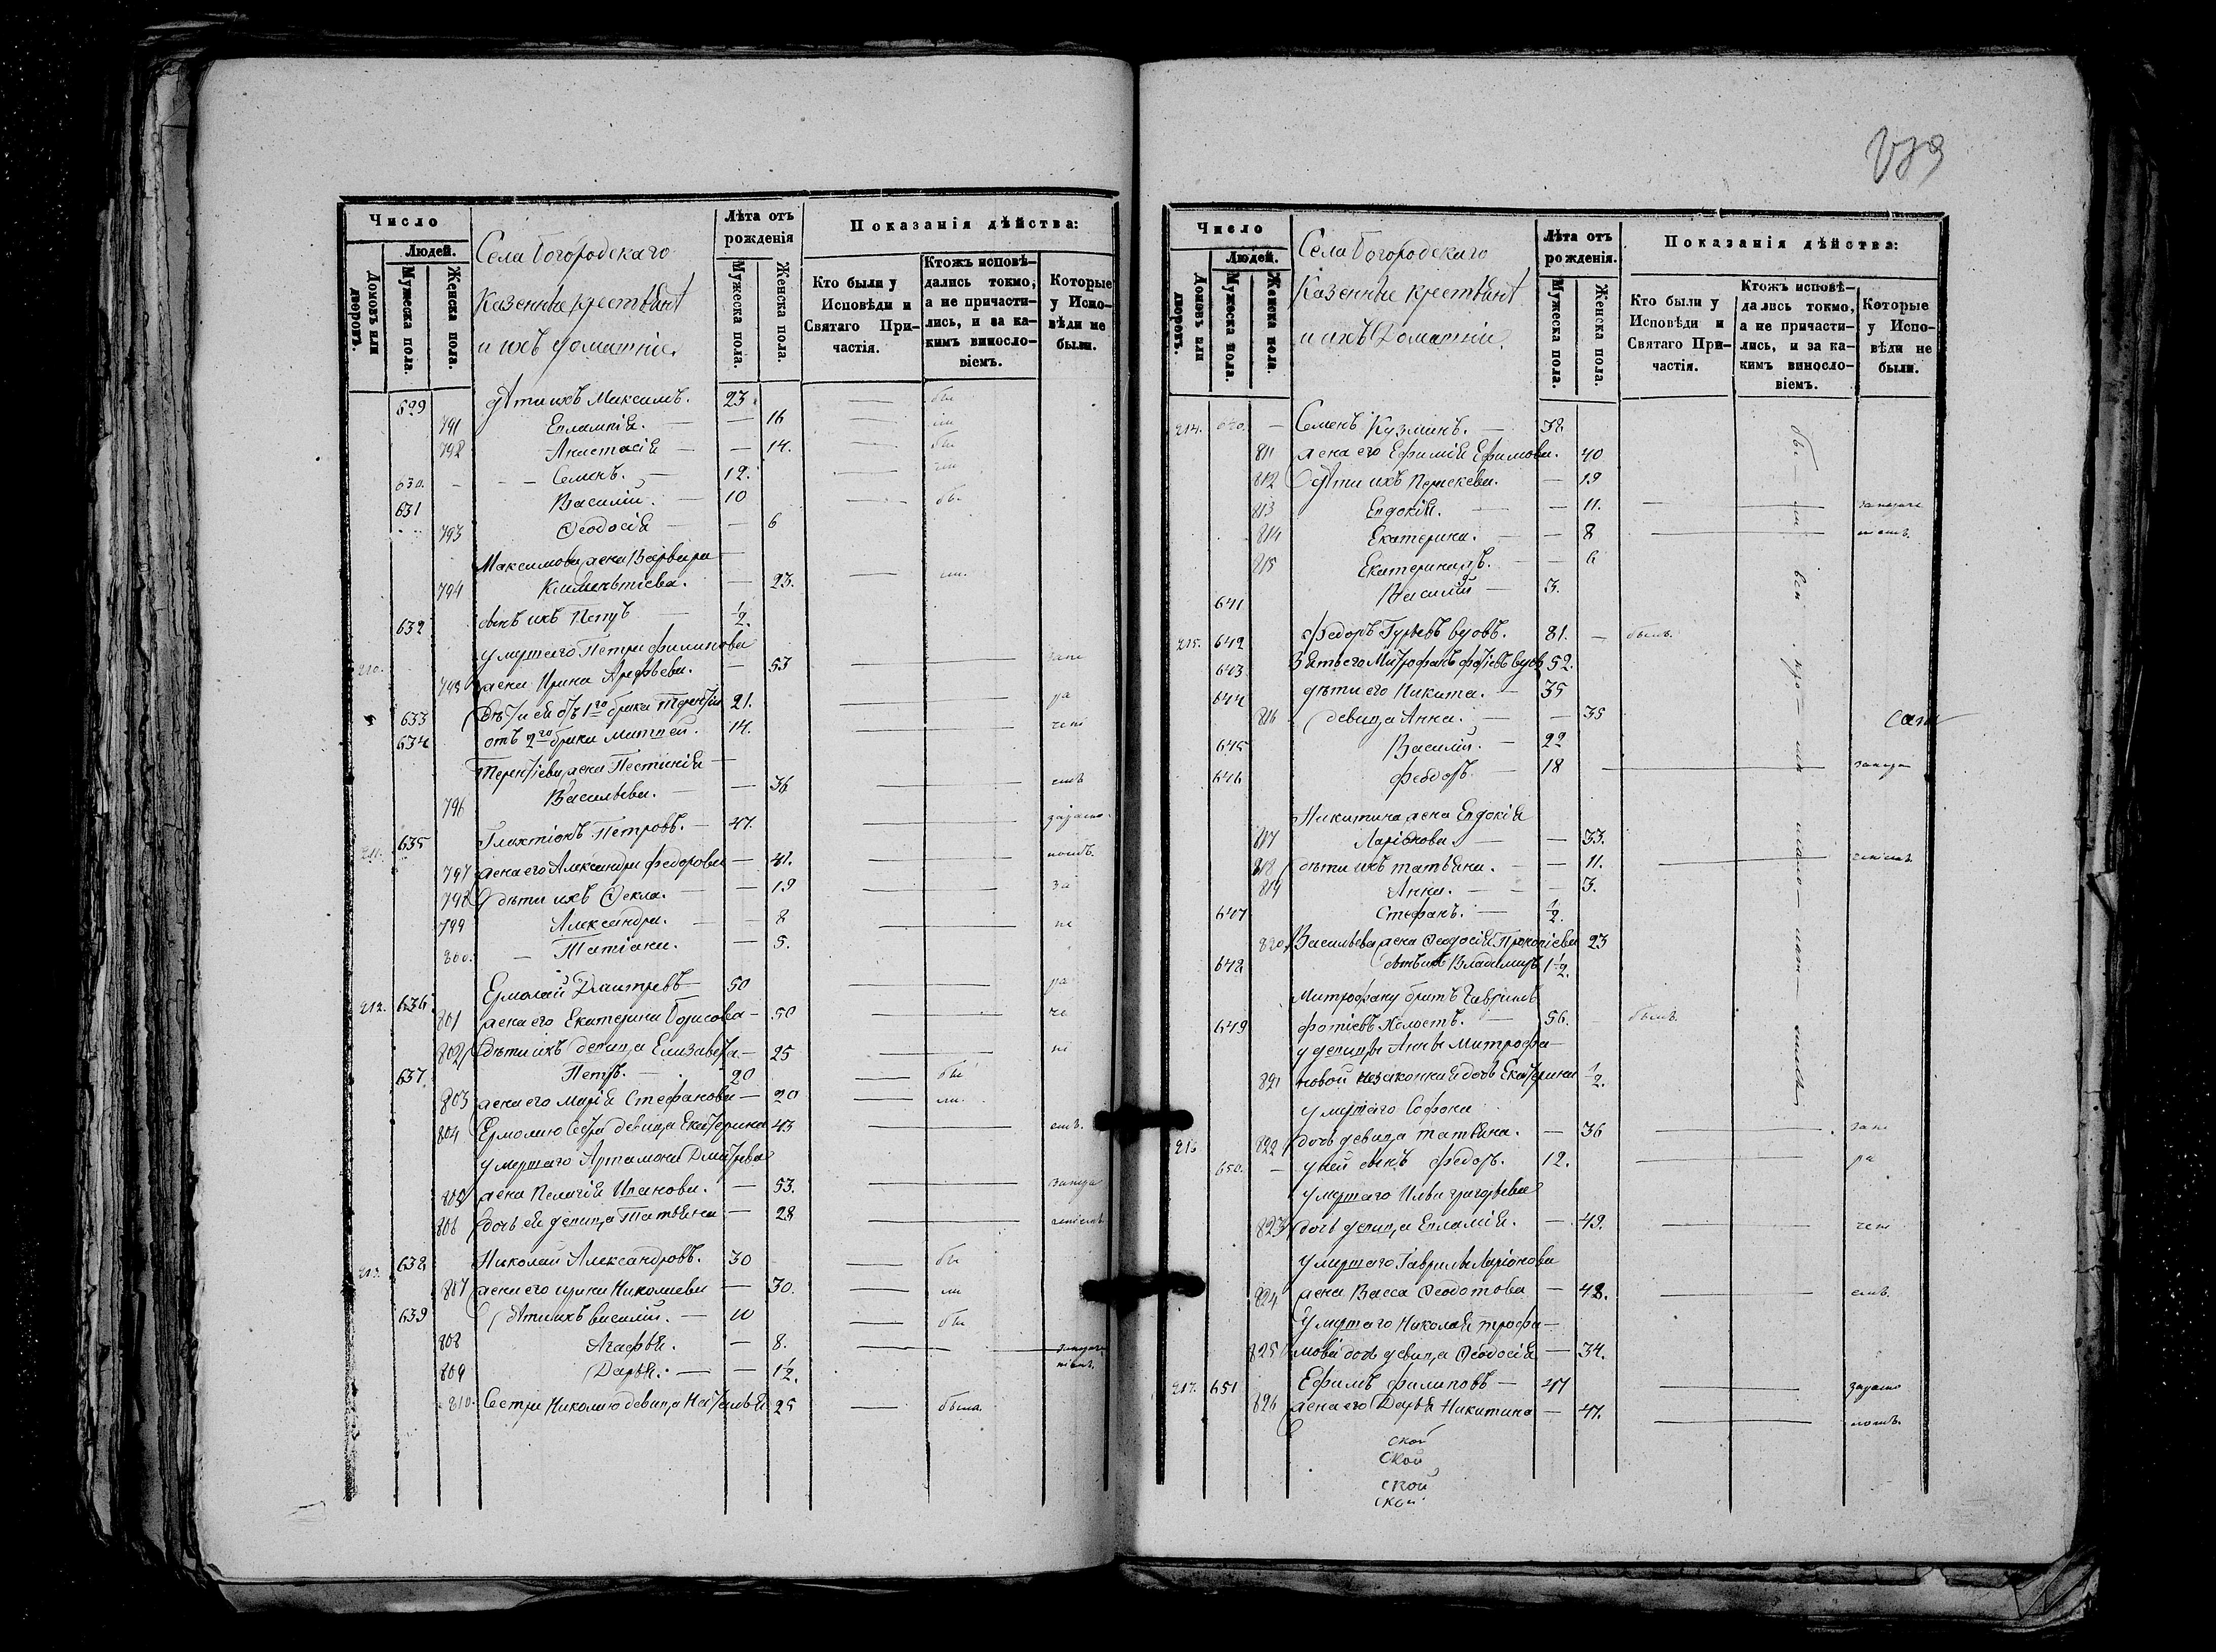 Число
Людей.
Домовъ или дворовъ.
Мужеска пола.
Женска пола.
Села Богородскаго
Казенные крестьянѣ
и ихъ домашніе.
Лѣта отъ рожденія
Мужеска пола.
Женска пола.
Показанія дѣйства:
Кто были у Исповѣди и Святаго Причастія.
Ктожъ исповѣдались токмо, а не причастились, и за какимъ винословіемъ.
Которые у Исповѣди не были.
629 дѣти ихъ Максимъ. 23
791 Евлампія. — 16
792 Анастасія — 14.
630. Семенъ. — 12.
631 Василій. — 10
793 Ѳеодосія — 6
Максимова жена Варвара
794 Климентіева. — 23.
632 сынъ ихъ Петръ — ½.
умершаго Петра Филимонова
210. 795 жена Ирина Арефьева. — 53
633 дѣти ея отъ 1го брака Терентій 21.
634 отъ 2го брака Матвей. 14.
Терентіева жена Пестинія
796 Васильева. — 36
211. 635 Галактіонъ Петровъ. — 47.
797 жена его Александра Федорова — 41.
798 дѣти ихъ Ѳекла. — 19
799 Александра. — 8
800. Татіана. — 5.
212. 636 Ермолай Дмитревъ 50
801 жена его Екатерина Борисова — 50
802 дѣти ихъ девица Елизавета — 25
637. Петръ. — 20
803 жена его Марія Стефанова — 20
804 Ермолаю сестра девица Екатерина 43
умершаго Артамона Дмитрева
805 жена Пелагія Иванова. — 53.
806 дочь ея девица Татьяна — 28
213. 638 Николай Александровъ. 30
807 жена его Ирина Николаева — 30.
639 дѣти ихъ Василій. — 10
808 Агафья. — 8.
809 Дарья. — 1½.
810. Сестра Николаю девица Наталья 25 была.
Число
Людей.
Домовъ или дворовъ.
Мужеска пола.
Женска пола.
Села Богородскаго
Казенные крестьянѣ
и ихъ Домашніи.
Лѣта отъ рожденія.
Мужеска пола.
Женска пола.
Показанія дѣйства:
Кто были у Исповѣди и Святаго Причастія.
Ктожъ исповѣдались токмо, а не причастились, и за какимъ винословіемъ.
Которые у Исповѣди не были.
214. Семенъ Кузминъ. — 38
811 жена его Ефимія Ефимова. 40
812 дѣти ихъ Параскева. — 19
813 Евдокія. — 11.
814 Екатерина. — 8
815 Екатерина жъ. — 6
641 Василій — 3.
215. 642 Федоръ Гурьевъ вдовъ. 81. былъ.
643 Зять его Митрофанъ Фотіевъ вдов 52.
644 дѣти его Никита. — 35
816 девица Анна. — 35
645 Василій. — 22
646 Федоръ. — 18
Никитина жена Евдокія
817 Ларіонова. — 33.
818 дѣти ихъ Татьяна. — 11.
819 Анна. — 3.
647 Стефанъ. — ½.
820 Васильева жена Ѳеодосія Прокопіева 23
648 сынъ ихъ Владимиръ 1½.
Митрофану братъ Гавріилъ
649 Фотіевъ Холостъ. — 56. былъ.
у девицы Анны Митрофа-
821 новой незаконная дочь Екатерина ½.
умершаго Софона
216 822 дочь девица Татьяна. — 36
650. у ней сынъ Федоръ. 12.
умершаго Ильи Григорьева
823 дочь девица Евламія. — 49.
умершаго Гаврилы Ларіонова
824 жена Васса Ѳеодотова — 48.
Умершаго Николая Трофи-
825 мова дочь девица Ѳеодосія — 34.
217. 651 Ефимъ Филиповъ — 47
826 жена его Дарья Никитина — 47.
ской
ской
ской
ской